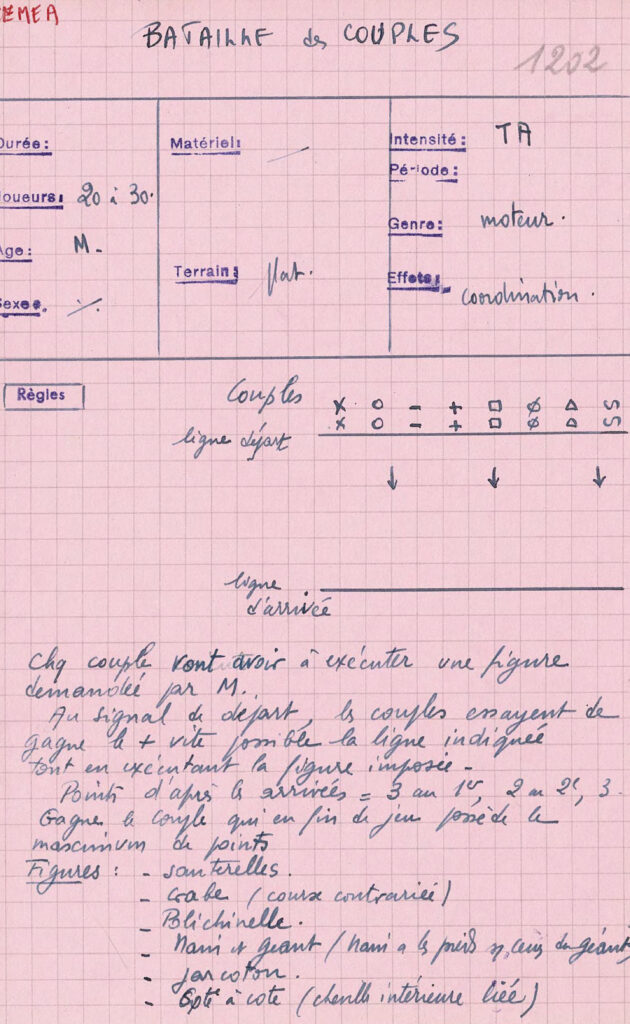 CEMEA
BATAILLE des COUPLES
1202
Durée:
Joueurs: 20 à 30.
Age: M-
Sexes.
Matériel:
Terrain: plat.
Intensité: TA
Période:
Genre: moteur.
Effets: coordination.
Règles
Couples
ligne départ
ligne
d'arrivée
Chq couple vont avoir à exécuter une figure
demandée par M.
Au signal de départ, les couples essayent de
gagne le + vite possible la ligne indiquée
tout en exécutant la figure imposée -
Points d'après les arrivées = 3 au 1er, 2 au 2e, 3.
Gagne le couple qui en fin de jeu possède le
maximum de points
Figures : - sauterelles.
- crabe (course contrariée)
- Polichinelle.
- Nain et géant (Nain a les pieds sur ceux du géant)
-
- Côte à côte (chenille intérieure liée)